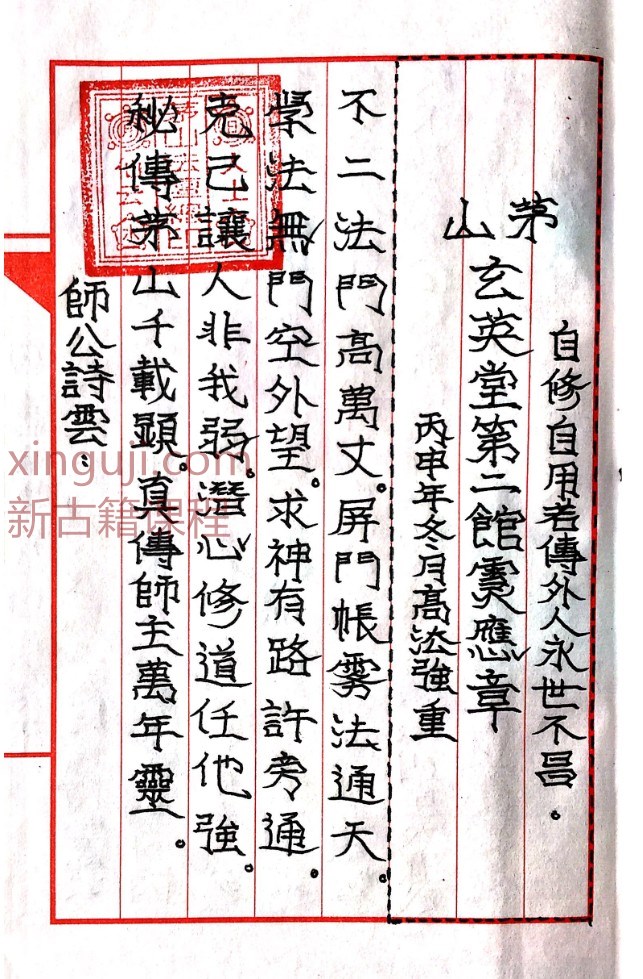 自修自用若傳外人永世不昌.
茅山
玄英堂第二館靈應章
丙申年冬月高法強重
不二法門高萬丈。屏門帳雾法通天。
學法無門空外望。求神有路許旁通。
克己讓人非我弱。潛心修道任他強。
秘傳茅山千載顕。真傳師主萬年靈。
師公詩雲：
xinguji.com
新古籍课程